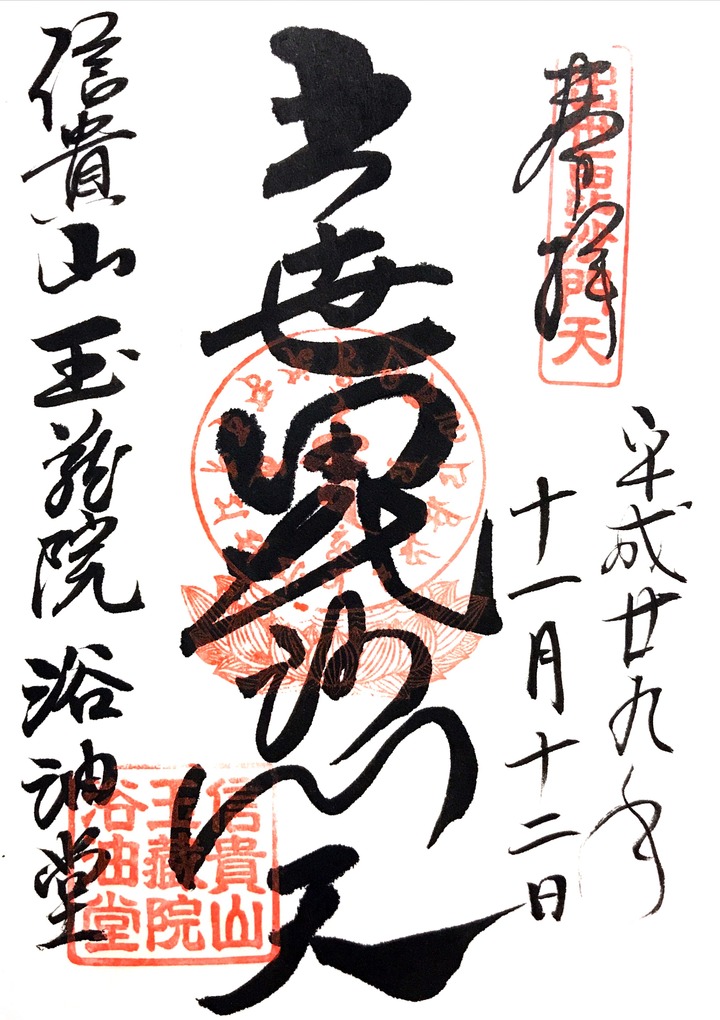 奉拝
出世毘沙門天
平成廿九年
十一月十二日
出世毘沙門天
信貴山
玉藏院
浴油堂
信貴山玉蔵院浴油堂